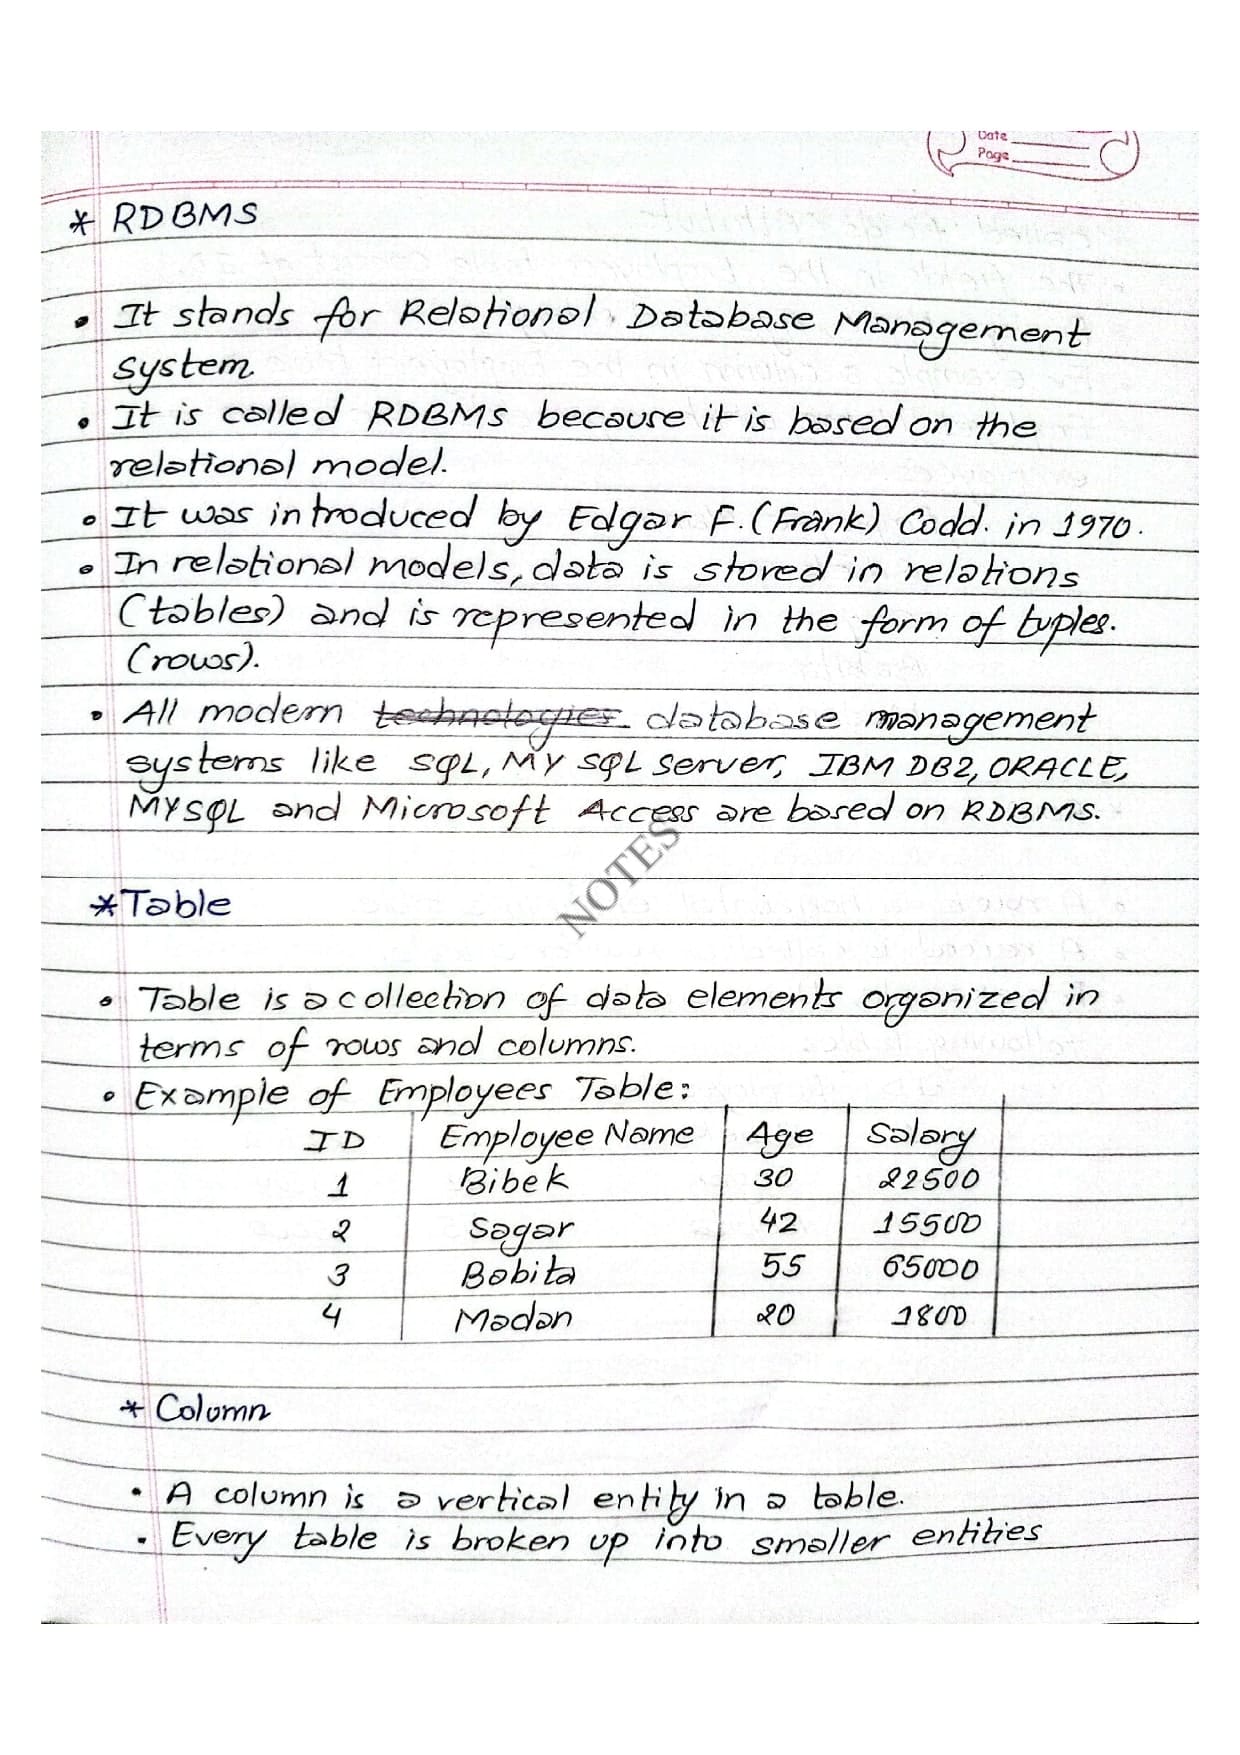 Date
Page
* RDBMS
• It stands for Relational Database Management
system
• It is called RDBMS because it is based on the
relational model.
• It was introduced by Edgar F. (Frank) Codd. in 1970.
• In relational models, data is stored in relations
(tables) and is represented in the form of tuples.
(rows).
• All modern technologies database management
systems like SQL, MY SQL Server, IBM DB2, ORACLE,
MYSQL and Microsoft Access are based on RDBMS.
NOTES
* Table
• Table is a collection of data elements organized in
terms of rows and columns.
• Example of Employees Table:
ID Employee Name Age Salary
1 Bibek 30 22500
2 Sagar 42 15500
3 Bobita 55 65000
4 Madan 20 1800
* Column
• A column is a vertical entity in a table.
• Every table is broken up into smaller entities